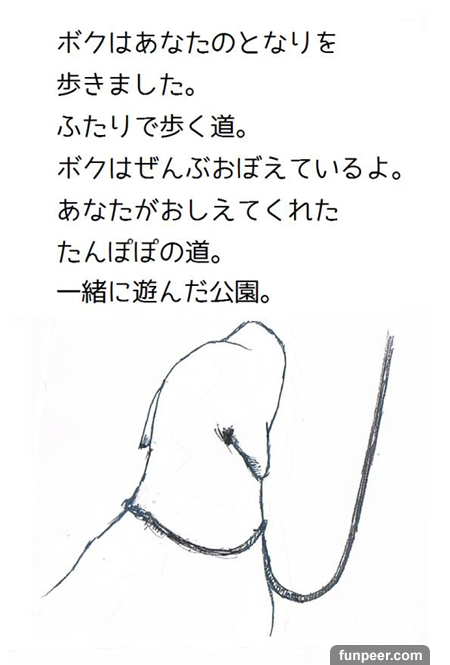 ボクはあなたのとなりを
歩きました。
ふたりで歩く道。
ボクはぜんぶおぼえているよ。
あなたがおしえてくれた
たんぽぽの道。
一緒に遊んだ公園。
funpeer.com